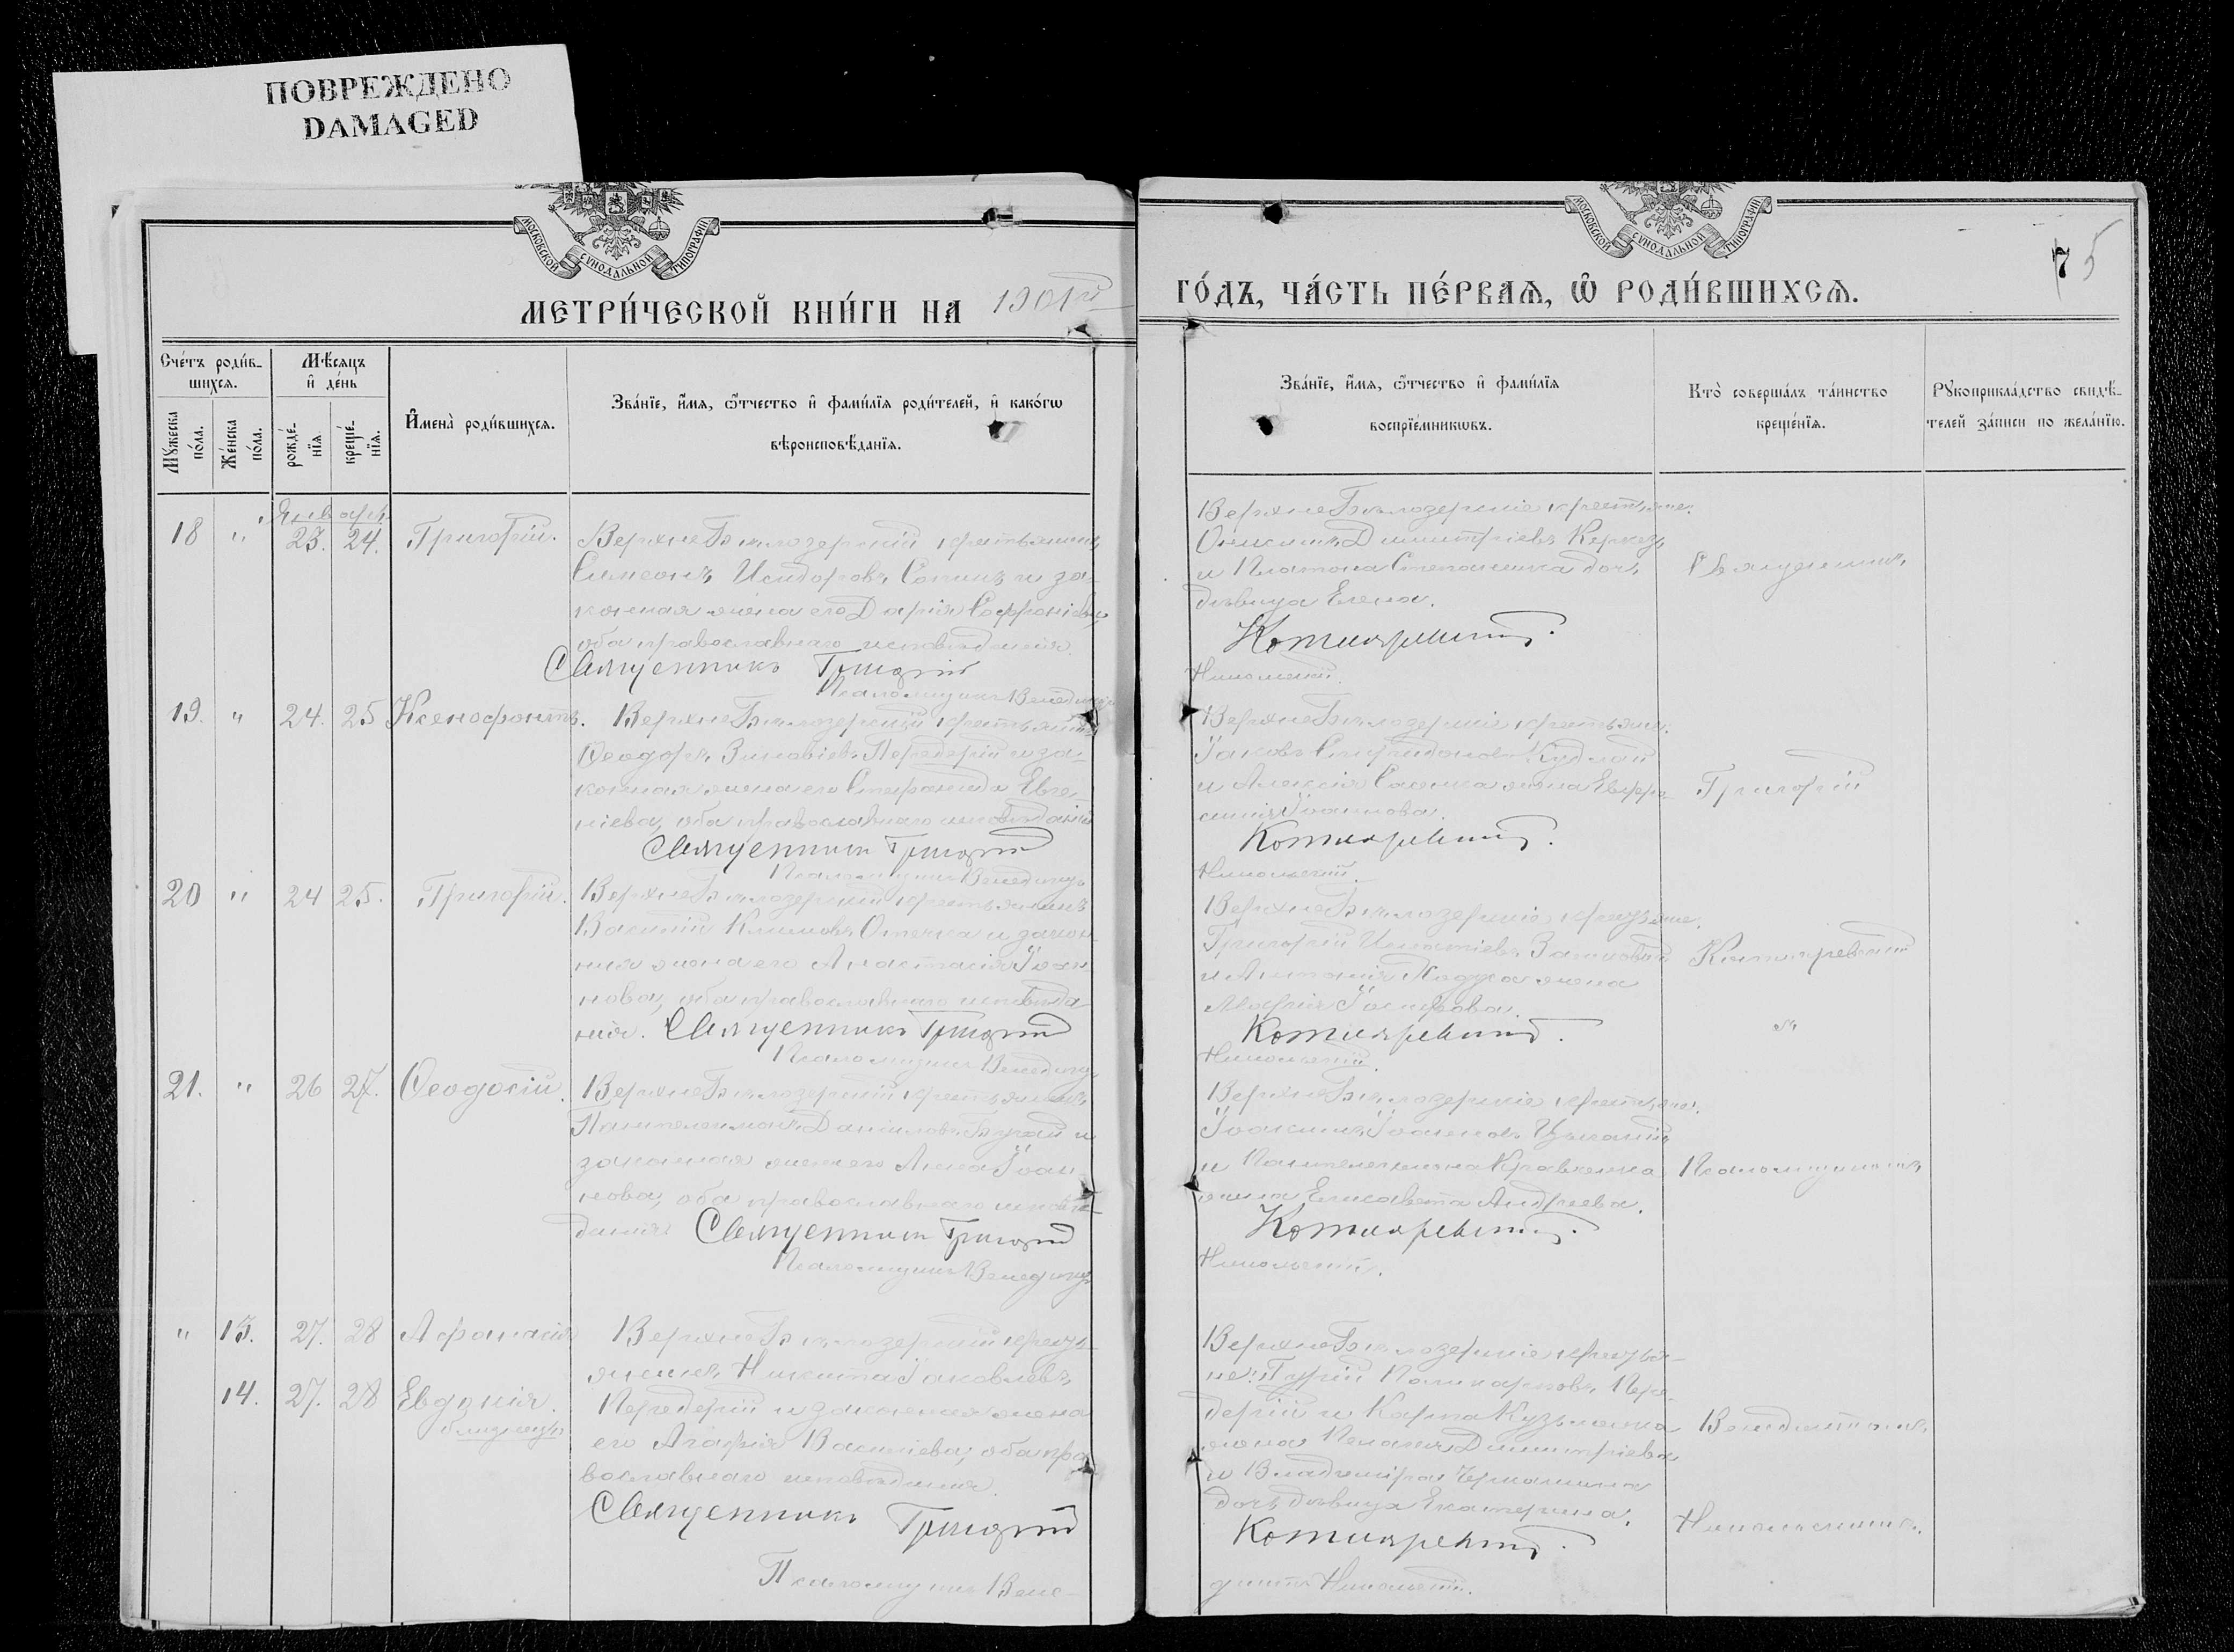 ПОВРЕЖДЕНО
DAMAGED
МОСКОВСКОЙ СѴНОДАЛЬНОЙ ТИПОГРАФІИ
МОСКОВСКОЙ СѴНОДАЛЬНОЙ ТИПОГРАФІИ
75
МЕТРИ́ЧЕСКОЙ КНИ́ГИ НА 1901й ГО́ДЪ, ЧА́СТЬ ПЕ́РВАѦ, Ѡ҆ РОДИ́ВШИХСѦ.
Сче́тъ роди́в-
шихсѧ.
Мꙋжеска по́ла.
Же́нска по́ла.
Мѣ́сѧцъ и҆ де́нь
рожде́-нїѧ.
креще́-нїѧ.
И҆мена̀ роди́вшихсѧ.
Зва́нїе, и҆́мѧ, ѻ҆́тчество и҆ фами́лїѧ роди́телей, и҆ како́гѡ
вѣроисповѣ́данїѧ.
Зва́нїе, и҆́мѧ, ѻ҆́тчество и҆ фами́лїѧ
воспрїе́мникѡвъ.
Кто̀ соверша́лъ та́инство
креще́нїѧ.
Рꙋкоприкла́дство свидѣ́-
телей за́писи по жела́нїю.
Января
18 " 23. 24. Григорій.
ВерхнеБѣлозерскій крестьянинъ
Симеонъ Исидоровъ и за-
конная жена его Дарія Софроніева,
оба православнаго исповѣданія.
Священникъ Григорій
Псаломщикъ Венедиктъ
ВерхнеБѣлозерскіе крестьяне:
Онисимъ Димитріевъ
и Платона Степаненка дочь,
дѣвица Елена.
Котляревскій.
Никольскій.
Священникъ
19. " 24. 25 Ксенофонтъ.
ВерхнеБѣлозерскій крестьянинъ
Ѳеодоръ Зиновіевъ Передерій и за-
конная жена его Стефанида Евге-
ніева, оба православнаго исповѣданія
Священникъ Григорій
Псаломщикъ Венедиктъ
ВерхнеБѣлозерскіе крестьяне:
Іаковъ Спиридоновъ
и Алексія жена Евфро-
синія Іоаннова.
Котляревскій.
Никольскій.
Григорій
20 " 24 25. Григорій.
ВерхнеБѣлозерскій крестьянинъ
Василій Климовъ и закон-
ная жена его Анастасія Іоан-
нова, оба православнаго исповѣда-
нія. Священникъ Григорій
Псаломщикъ Венедиктъ
ВерхнеБѣлозерскіе крестьяне:
Григорій Игнатіевъ
и Антонія жена
Марфа Іосифова.
Котляревскій.
Никольскій.
Котляревскій
21. " 26 27. Ѳеодосій.
ВерхнеБѣлозерскій крестьянинъ
Пантелеимонъ Даніиловъ и
законная жена его Анна Іоан-
нова, оба православнаго исповѣ-
данія Священникъ Григорій
Псаломщикъ Венедиктъ
ВерхнеБѣлозерскіе крестьяне:
Іоакимъ Іоанновъ
и Пантелеимона Кравченка
жена Елисавета Андреева.
Котляревскій.
Никольскій.
Псаломщикомъ
" 13. 27. 28 Афанасія
14. 27. 28 Евдокія.
близнецы
ВерхнеБѣлозерскій кресть-
янинъ Никита Іаковлевъ
Передерій и законная жена
его Агафія Василіева, оба пра-
вославнаго исповѣданія.
Священникъ Григорій
Псаломщикъ Вене-
ВерхнеБѣлозерскіе крестья-
не: Гурій Поликарповъ Пере-
дерій и Карпа Кузьменка
жена Пелагія Димитріева
и Владиміра
дочь дѣвица Екатерина.
Котляревскій.
диктъ Никольскій.
Венедиктомъ
Никольскимъ.